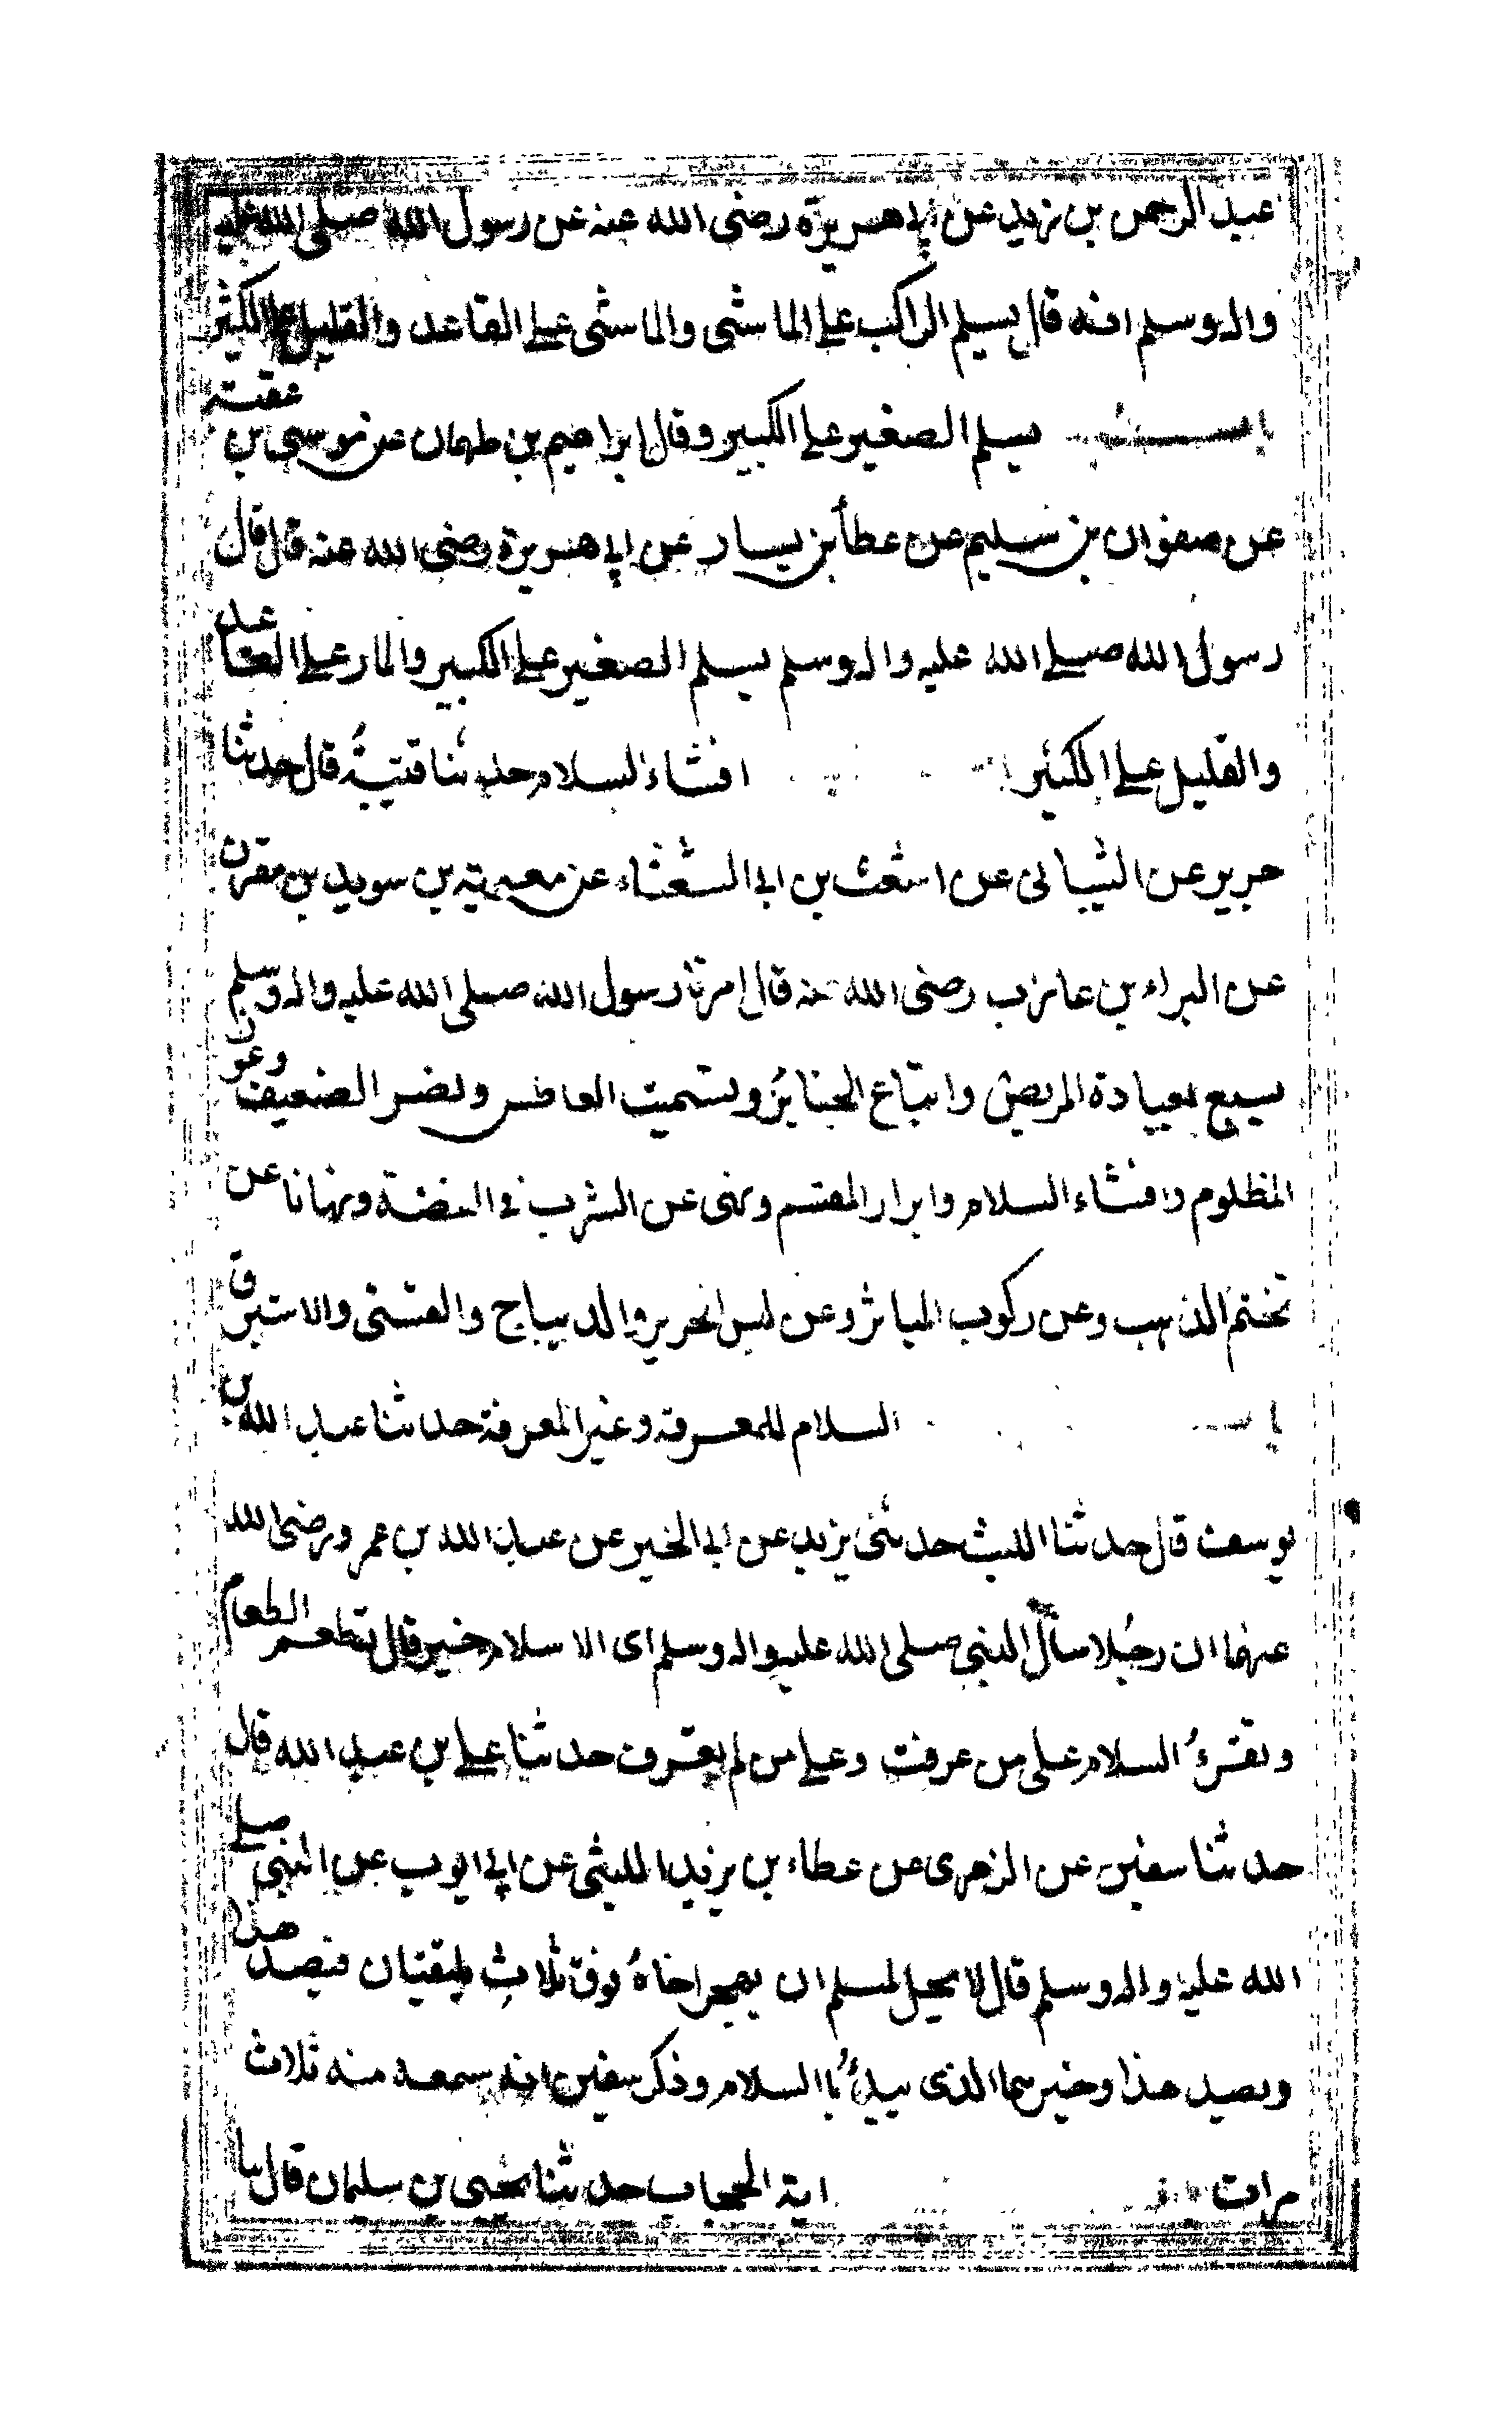 عبد الرحمن بن زيد عن ابي هريرة رضى الله عنه عن رسول الله صلى الله عليه
واله وسلم انه قال يسلم الراكب على الماشى والماشى على القاعد والقليل على الكثير
باب يسلم الصغير على الكبير وقال ابراهيم بن طهمان عن موسى بن عقبة
عن صفوان بن سليم عن عطأ بن يسار عن ابي هريرة رضى الله عنه قال قال
رسول الله صلى الله عليه واله وسلم يسلم الصغير على الكبير والمار على القاعد
والقليل على الكثير افشاء السلام حدثنا قتيبة قال حدثنا
جرير عن الشيبانى عن اشعث بن ابى الشعثاء عن معوية بن سويد بن مقرن
عن البراء بن عازب رضى الله عنه قال امرنا رسول الله صلى الله عليه واله وسلم
بسبع بعيادة المريض واتباع الجنائز وتشميت العاطس ونصر الضعيف وعون
المظلوم وافشاء السلام وابرار المقسم ونهى عن الشرب فى الفضة ونهانا عن
تختم الذهب وعن ركوب المياثر وعن لبس الحرير والديباج والقسى والاستبرق
باب السلام للمعرفة وغير المعرفة حدثنا عبد الله بن
يوسف قال حدثنا الليث حدثنى يزيد عن ابى الخير عن عبد الله بن عمرو رضى الله
عنهما ان رجلا سأل النبى صلى الله عليه واله وسلم اى الاسلام خير قال تطعم الطعام
وتقرء السلام على من عرفت وعلى من لم تعرف حدثنا على بن عبد الله قال
حدثنا سفين عن الزهرى عن عطاء بن يزيد الليثى عن ابى ايوب عن النبى صلى
الله عليه واله وسلم قال لا يحل لمسلم ان يهجر اخاه فوق ثلاث يلتقيان فيصد هذا
ويصد هذا وخيرهما الذى يبدأ باالسلام وذكر سفين انه سمعه منه ثلاث
مرات اية الحجاب حدثنا يحيى بن سليمان قال ثنا